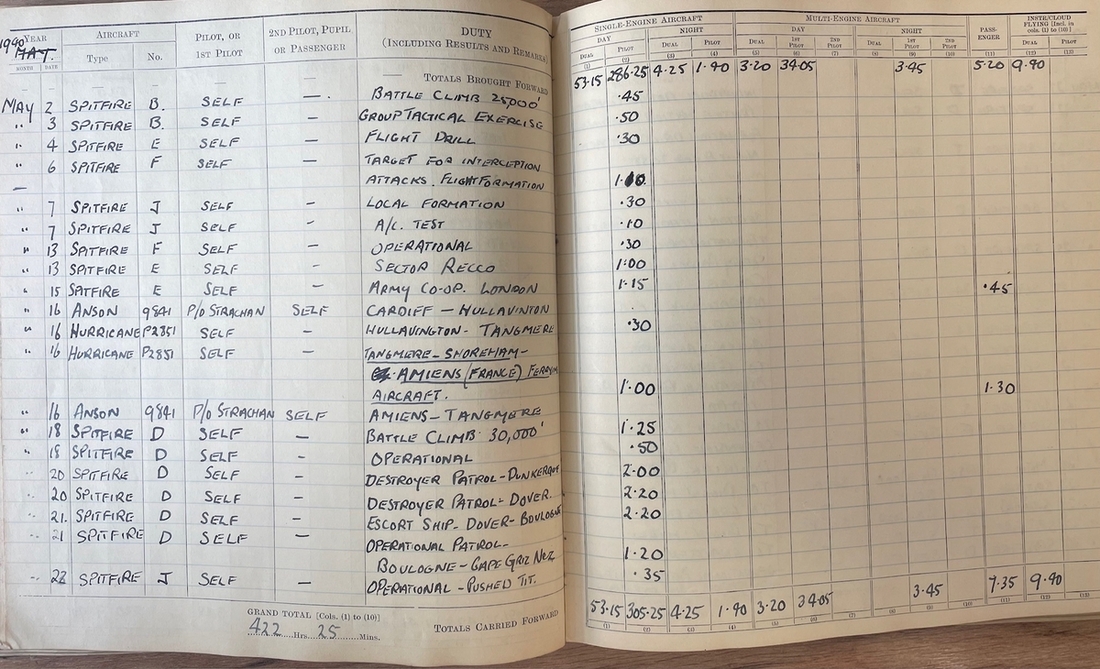 YEAR AIRCRAFT PILOT, OR 1ST PILOT 2ND PILOT, PUPIL OR PASSENGER DUTY (INCLUDING RESULTS AND REMARKS) SINGLE-ENGINE AIRCRAFT MULTI-ENGINE AIRCRAFT PASS-ENGER INSTR/CLOUD FLYING [Incl. in cols. (1) to (10)]
1940 MAY. DAY NIGHT DAY NIGHT
MONTH DATE Type No. DUAL PILOT DUAL PILOT DUAL 1ST PILOT 2ND PILOT DUAL 1ST PILOT 2ND PILOT DUAL PILOT
(1) (2) (3) (4) (5) (6) (7) (8) (9) (10) (11) (12) (13)
— — — — — — TOTALS BROUGHT FORWARD 53.15 286.25 4.25 1.40 3.20 34.05 3.45 5.20 9.40
MAY 2 SPITFIRE B. SELF —. BATTLE CLIMB 25,000' .45
" 3 SPITFIRE B. SELF — GROUP TACTICAL EXERCISE .50
" 4 SPITFIRE E SELF — FLIGHT DRILL .30
" 6 SPITFIRE F SELF — TARGET FOR INTERCEPTION
— ATTACKS. FLIGHT FORMATION 1.10
" 7 SPITFIRE J SELF — LOCAL FORMATION .30
" 7 SPITFIRE J SELF — A/C. TEST .10
" 13 SPITFIRE F SELF — OPERATIONAL .30
" 13 SPITFIRE E SELF — SECTOR RECCO 1.00
" 15 SPITFIRE E SELF — ARMY CO-OP. LONDON 1.15
" 16 ANSON 9841 P/O STRACHAN SELF CARDIFF — HULLAVINTON .45
" 16 HURRICANE P2851 SELF — HULLAVINGTON - TANGMERE .30
" 16 HURRICANE P2851 SELF — TANGMERE - SHOREHAM -
AMIENS (FRANCE) FERRYING
AIRCRAFT. 1.00
" 16 ANSON 9841 P/O STRACHAN SELF AMIENS - TANGMERE 1.30
" 18 SPITFIRE D SELF — BATTLE CLIMB 30,000' 1.25
" 18 SPITFIRE D SELF — OPERATIONAL .50
" 20 SPITFIRE D SELF — DESTROYER PATROL - DUNKERQUE 2.00
" 20 SPITFIRE D SELF — DESTROYER PATROL - DOVER. 2.20
" 21. SPITFIRE D SELF — ESCORT SHIP - DOVER - BOULOGNE 2.20
" 21 SPITFIRE D SELF — OPERATIONAL PATROL -
BOULOGNE - CAPE GRIZ NEZ 1.20
" 22 SPITFIRE J SELF — OPERATIONAL - PUSHED TIT. .35
GRAND TOTAL [Cols. (1) to (10)]
422 Hrs. 25 Mins. TOTALS CARRIED FORWARD 53.15 305.25 4.25 1.40 3.20 34.05 3.45 7.35 9.40
(1) (2) (3) (4) (5) (6) (7) (8) (9) (10) (11) (12) (13)